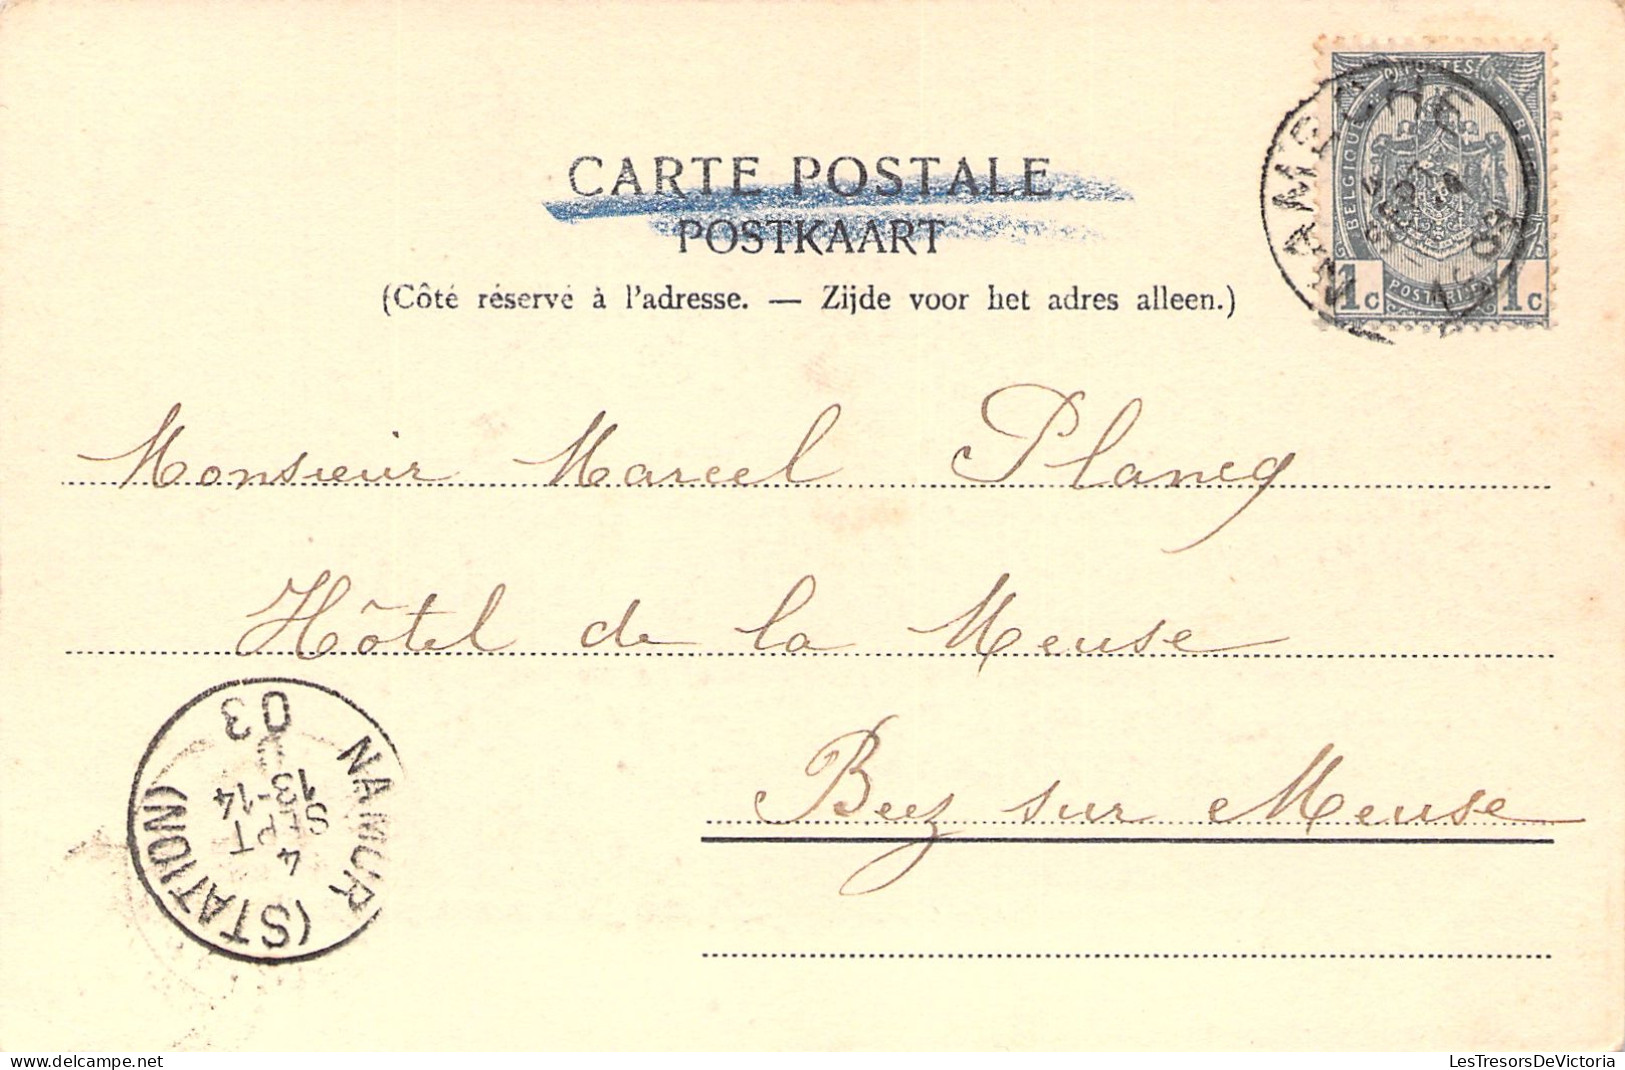 CARTE POSTALE
POSTKAART
(Côté réservé à l'adresse. — Zijde voor het adres alleen.)
POSTES
BELGIQUE
1c 1c
NAMECHE
Monsieur Marcel Plancq
Hôtel de la Meuse
Beez sur Meuse
NAMUR (STATION)
4
SEPT
13-14
03
LesTresorsDeVictoria
LesTresorsDeVictoria.com